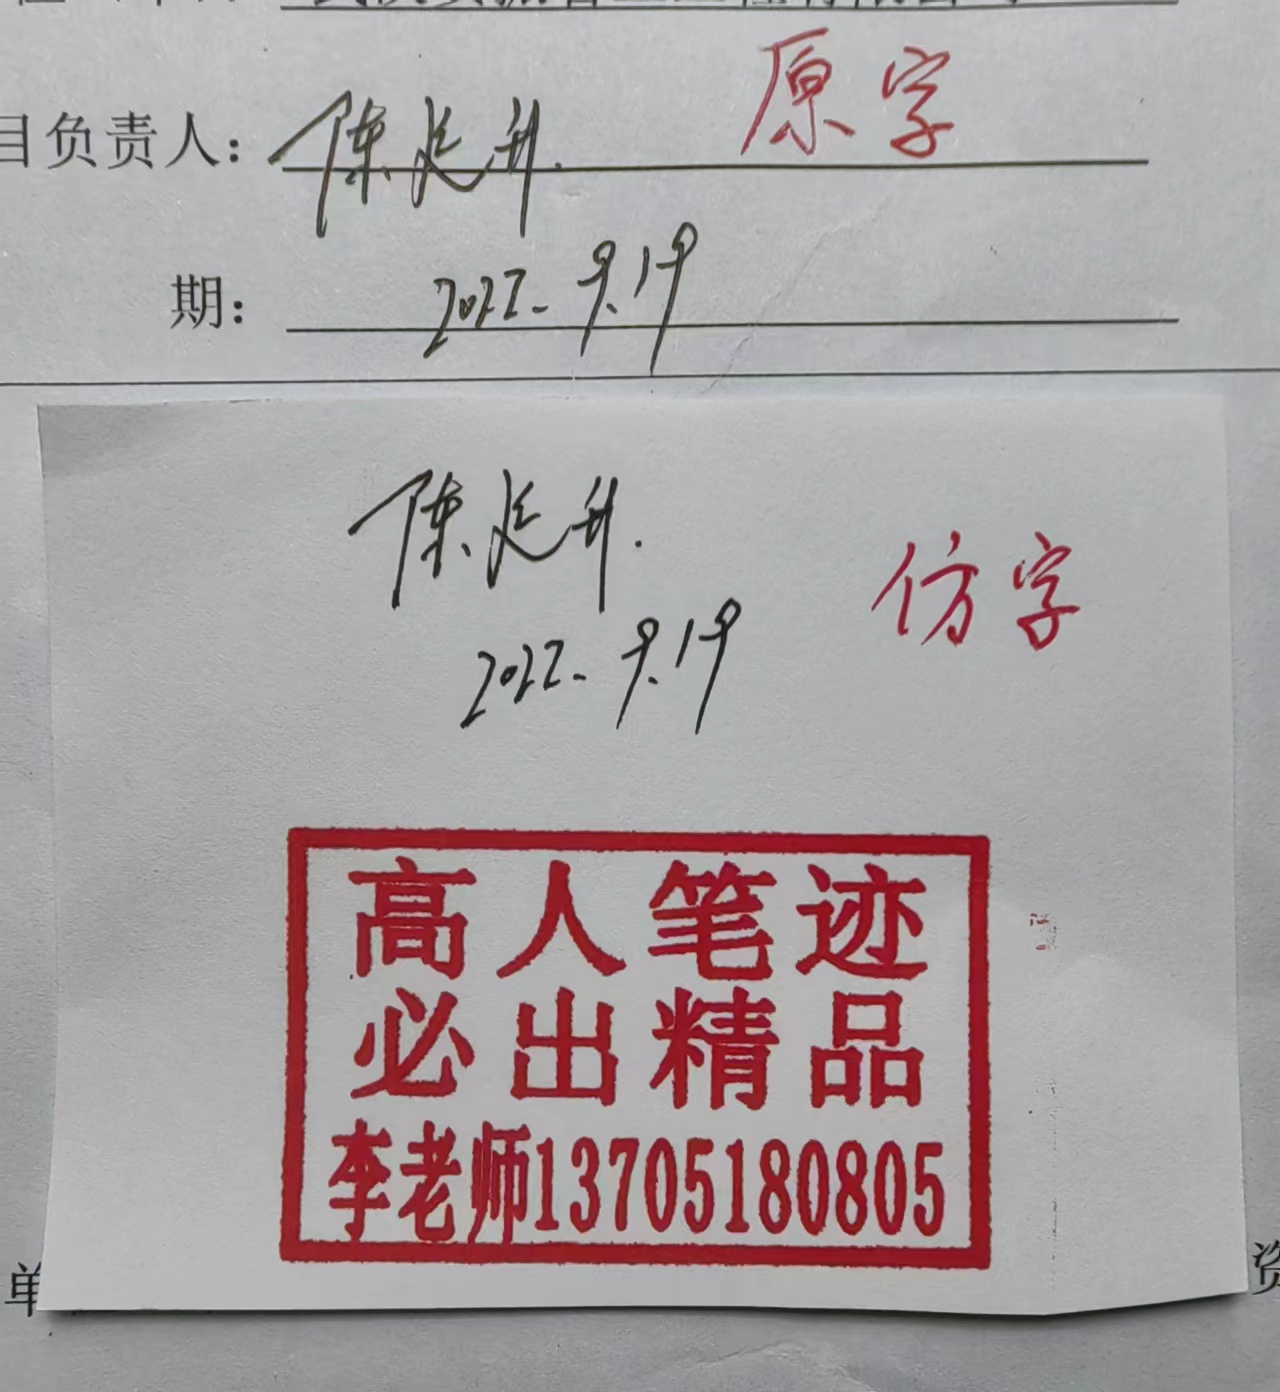 目负责人：陈延升.
原字
期：2022.9.19
陈延升.
仿字
2022.9.19
高人笔迹
必出精品
李老师13705180805
单
资